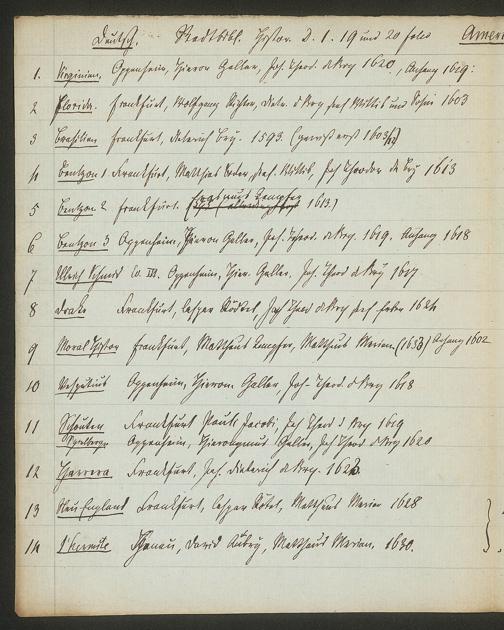 Deutsch. Stadtbibl. Histor. 2. 1. 19 und 20 folio Ameri
1. Virginien, Oppenheim, Hieron Galler, Joh. Theod. de Bry 1620, Anhang 1619:
2 Florida. Frankfurt, Wolfgang Richter, Dietr. d Bry seel Wittib und Söhn 1603
3 Brasilien Frankfurt, Dieterich Bry. 1593.
4 Benzon 1 Frankfurt, Matthias Becker, seel. Wittib, Joh Theodor de Bry 1613
5 Benzon 2 Frankfurt. Erasmus Kempfer 1613.)
6 Benzon 3 Oppenheim, Hieron Galler, Joh. Theod. de Bry. 1619. Anhang 1618
7 Ulrich Schmid Oppenheim, Hier. Galler, Joh. Theod de Bry 1617.
8 Drake Frankfurt, Caspar Rödtel, Joh Theod de Bry seel Erben 1624
9 Moral Histor Frankfurt, Matthäus Kempfer, Matthäus Merian (1633) Anhang 1602
10 Vesputius Oppenheim, Hieron. Galler, Joh. Theod. d Bry 1618
11 Schouten Frankfurt Paull Jacobi, Joh Theod d Bry 1619
Spilbergen Oppenheim, Hieronymus Galler, Joh Theod d Bry 1620
12 Herrera Frankfurt, Joh. Dieterich de Bry. 1623.
13 Neu-England Frankfurt, Caspar Rötel, Matthäus Merian 1628
14 L'hermite Hanau, David Aubry, Matthäus Merian. 1630.